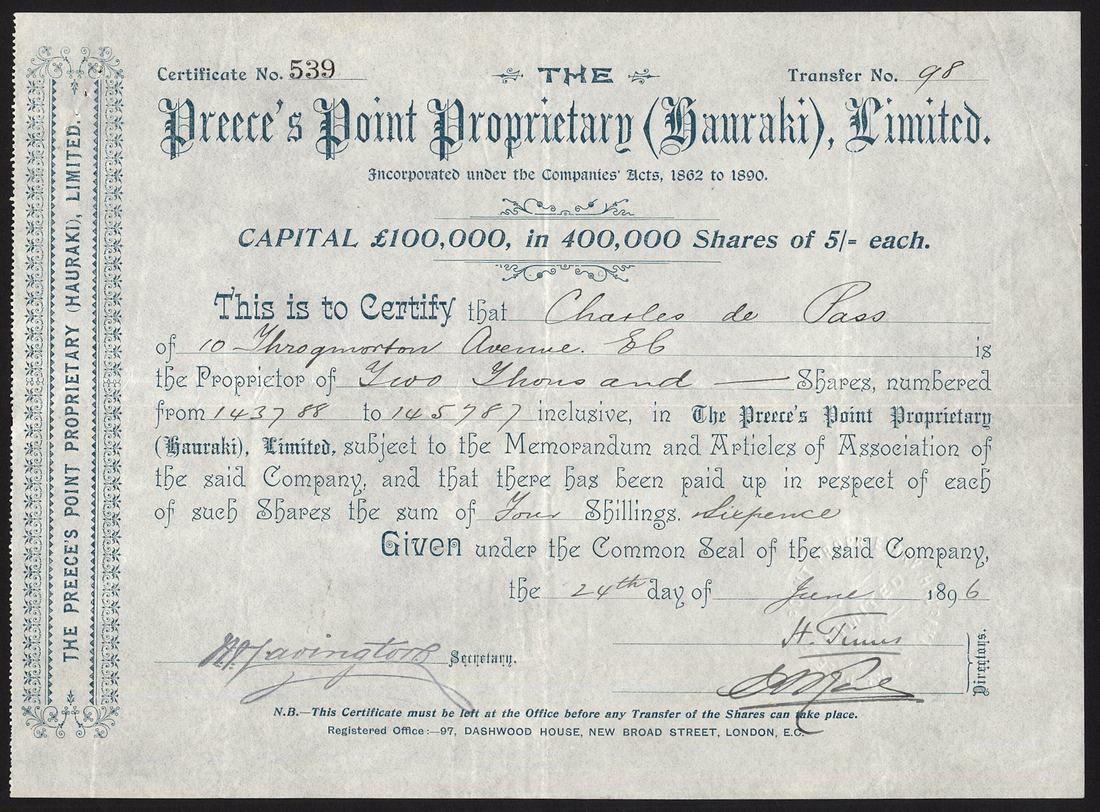 Certificate No. 539
THE
Transfer No. 98
Preece's Point Proprietary (Hauraki), Limited.
Incorporated under the Companies' Acts, 1862 to 1890.
CAPITAL £100,000, in 400,000 Shares of 5/= each.
This is to Certify that Charles de Pass
of 10 Throgmorton Avenue. EC is
the Proprietor of Two Thousand — Shares, numbered
from 143788 to 145787 inclusive, in The Preece's Point Proprietary
(Hauraki), Limited, subject to the Memorandum and Articles of Association of
the said Company, and that there has been paid up in respect of each
of such Shares the sum of Four Shillings. Sixpence
Given under the Common Seal of the said Company,
the 24th day of June 1896
Secretary.
Directors.
N.B.—This Certificate must be left at the Office before any Transfer of the Shares can take place.
Registered Office:—97, DASHWOOD HOUSE, NEW BROAD STREET, LONDON, E.C.
THE PREECE'S POINT PROPRIETARY (HAURAKI), LIMITED.